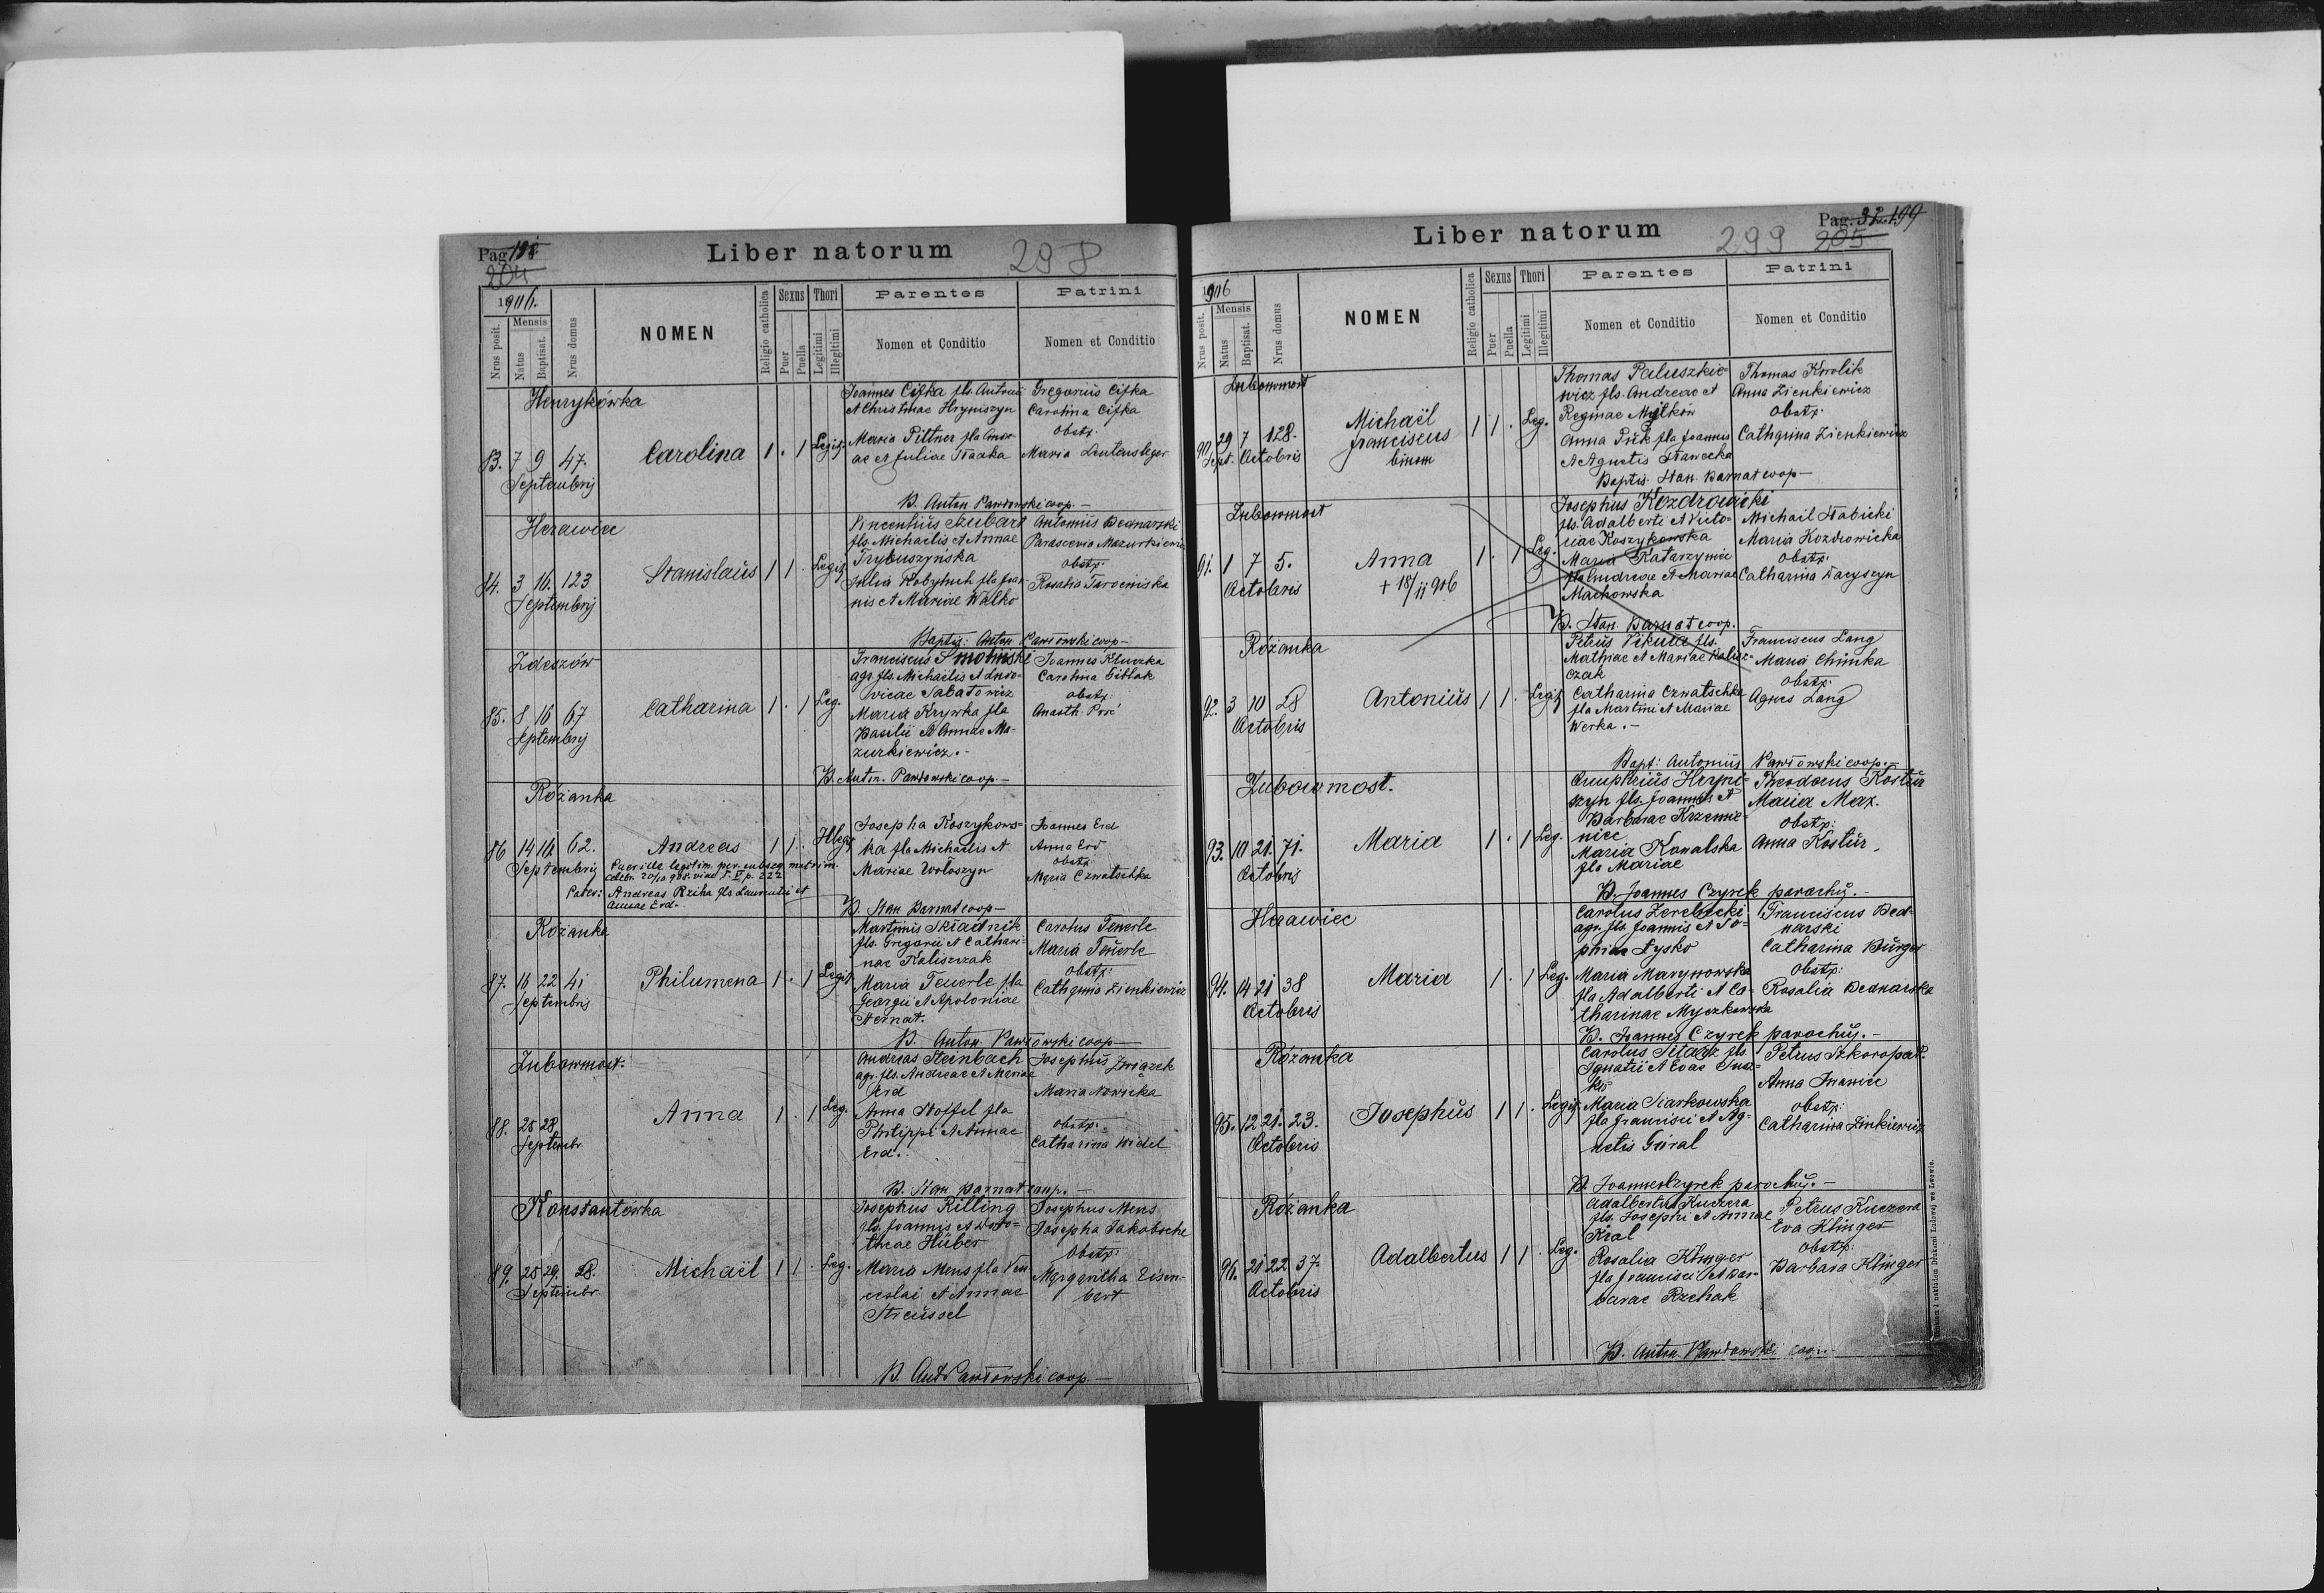 Pag. 198
204
Liber natorum
298
1906.
Nrus posit.
Mensis
Natus
Baptisat.
Nrus domus
NOMEN
Religio catholica
Sexus
Puer
Puella
Thori
Legitimi
Illegitimi
Parentes
Nomen et Conditio
Patrini
Nomen et Conditio
Henrykówka
83. 7 9 47.
Septembrij
Carolina 1 . 1 Legit.
Joannes Cifka fls Antonii
et Christinae Hryniszyn
Maria Pittner fla
ae et Juliae
Gregorius Cifka
Carolina Cifka
Obstx:
Maria
B. Anton Pawłowski coop. —
Herawiec
84. 3 16. 123
Septembrij
Stanislaus 1 1 . Legit.
Vincentius Szubart
fls. Michaelis et Annae
Trybuszyńska
Julia fla Joan-
nis et Mariae Walko
Antonius Bednarski
Parascevia Mazurkiewicz
Obstx:
Rosalia
Baptiz: Anton Pawłowski coop —
Zdeszów
85. 8 16 67
Septembrij
Catharina 1 . 1 Leg.
Franciscus Smoliński
agr. fls. Michaëlis et Ludo-
vicae Sabatowicz
Maria Krywka fla
Basilii et Annae Ma-
zurkiewicz. -
Joannes Kluczka
Carolina
Obstx:
Anasth.
B. Anton. Pawłowski coop. —
Różanka
86 14 16 62.
Septembrij
Andreas 1 1 . Illegit
Puer ille legitim. per subseq. matrim.
celebr. 20/10 908. vide T. IV p. 222
Pater: Andreas Rziha fls Laurentii et
Annae Erd.
Josepha Koszykows-
ka fla Michaelis et
Mariae Wołoszyn
Joannes Erd
Anna Erd
Obstx:
Maria Czwatschka
B. Stan Barnat coop —
Różanka
87. 16 22 41
Septembris
Philumena 1 . 1 Legit.
Martinus Składnik
fls. Gregorii et Cathari-
nae Kaliszczak
Maria Feuerle fla
Georgii et Apoloniae
Sternat.
Carolus Feuerle
Maria Feuerle
Obstx:
Catharina Zienkiewicz
B. Anton Pawłowski coop —
Zubowmost.
88. 25 28
Septembr.
Anna 1 . 1 Leg.
Andreas Steinbach
agr. fls. Andreae et Mariae
Erd
Anna Stoffel fla
Philippi et Annae
Erd.
Josephus Związek
Maria Nowicka
Obstx:
Catharina Widel
B. Stan Barnat coop. —
Konstantówka
89. 25 29. 28.
Septembr.
Michaël 1 1 . Leg.
Josephus Rilling
fls. Joannis et Doro-
theae Hüber
Maria Mens fla Ven
ceslai et Annae
Streüssel
Josephus Mens
Josepha Jakobsche
Obstx:
Margaritha Eisen-
bart
B. Ant Pawłowski coop —
Liber natorum
299
Pag. 32. 199
205
1906
Nrus posit.
Mensis
Natus
Baptisat.
Nrus domus
NOMEN
Religio catholica
Sexus
Puer
Puella
Thori
Legitimi
Illegitimi
Parentes
Nomen et Conditio
Patrini
Nomen et Conditio
Zubowmost
90 29 7 128.
Sept. Octobris
Michaël
Franciscus
binom
1 1 . Leg.
Thomas Paluszkie-
wicz fls. Andreae et
Reginae Myłków
Anna Pück fla Joannis
et Agnetis Stawecka
Thomas Korolik
Anna Zienkiewicz
Obstx:
Catharina Zienkiewicz
Baptis. Stan. Barnat coop —
Zubowmost
91. 1 7 5.
Octobris
Anna
+ 18/11 906
1 . 1 Leg.
Josephus Kozdrowicki
fls. Adalberti et Victo-
riae Koszykowska
Maria Katarzyniec
fla Andreae et Mariae
Machowska
Michail Słabicki
Maria Kozdrowicka
Obstx:
Catharina Dacyszyn
B. Stan. Barnat coop.
Różanka
92. 3 10 28
Octobris
Antonius 1 1 . Legit
Petrus Vikula fls.
Mathiae et Mariae Kalisz-
czak
Catharina Czwatschka
fla Martini et Mariae
Werka. —
Franciscus Lang
Maria Chimka
Obstx:
Agnes Lang
Bapt: Antonius Pawłowski coop. —
Zubowmost.
93. 10 21. 71.
Octobris
Maria 1 . 1 Leg.
Onuphrius Hryni-
szyn fls. Joannis et
Barbarae Krzemie-
niec
Maria Kowalska
fla Mariae
Theodorus Kostür
Maria Max.
Obstx:
Anna Kostür
B. Joannes Czyrek parochus. —
Herawiec
94. 14 21 38
Octobris
Maria 1 . 1 Leg.
Carolus Zerebecki
agr. fls. Joannis et So-
phiae Łysko
Maria Marynowska
fla Adalberti et Ca-
tharinae Myczkowska
Franciscus Bed-
narski
Catharina Bürger
Obstx:
Rosalia Bednarska
B. Joannes Czyrek parochus. —
Różanka
95. 12 21. 23.
Octobris
Josephus 1 1 . Legit.
Carolus Sitarz fls.
Ignatii et Evae
Maria Siarkowska
fla Francisci et Ag-
netis Góral
Petrus Szkoropad.
Anna Iwaniec
Obstx:
Catharina Zinkiewicz
B. Joannes Czyrek parochus. —
Różanka
96. 21 22 37.
Octobris
Adalbertus 1 1 . Leg.
Adalbertus Kuczera
fls. Josephi et Annae
Kral
Rosalia Klinger
fla Francisci et Bar-
barae Rzehak
Petrus Kuczera
Eva Klinger
Obstx:
Barbara Klinger
B. Anton. Pawłowski coop. —
nakładem Drukarni Ludowej we Lwowie.